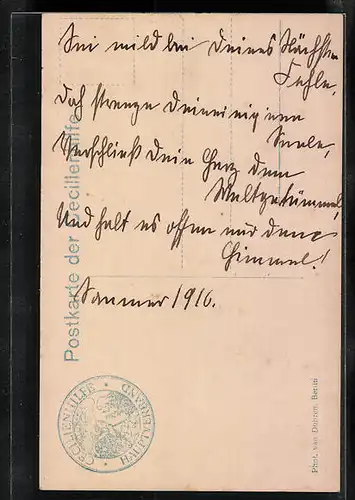 Sei mild bei deines Nächsten
Fehle,
Doch strenge deiner eigenen
Seele,
Verschließ dein Herz dem
Weltgetümmel,
Und halt es offen nur dem
Himmel!
Sommer 1916.
Postkarte der Cecilienhilfe
CECILIENHILFE • HAUPTVERBAND •
Phot. van Dühren, Berlin